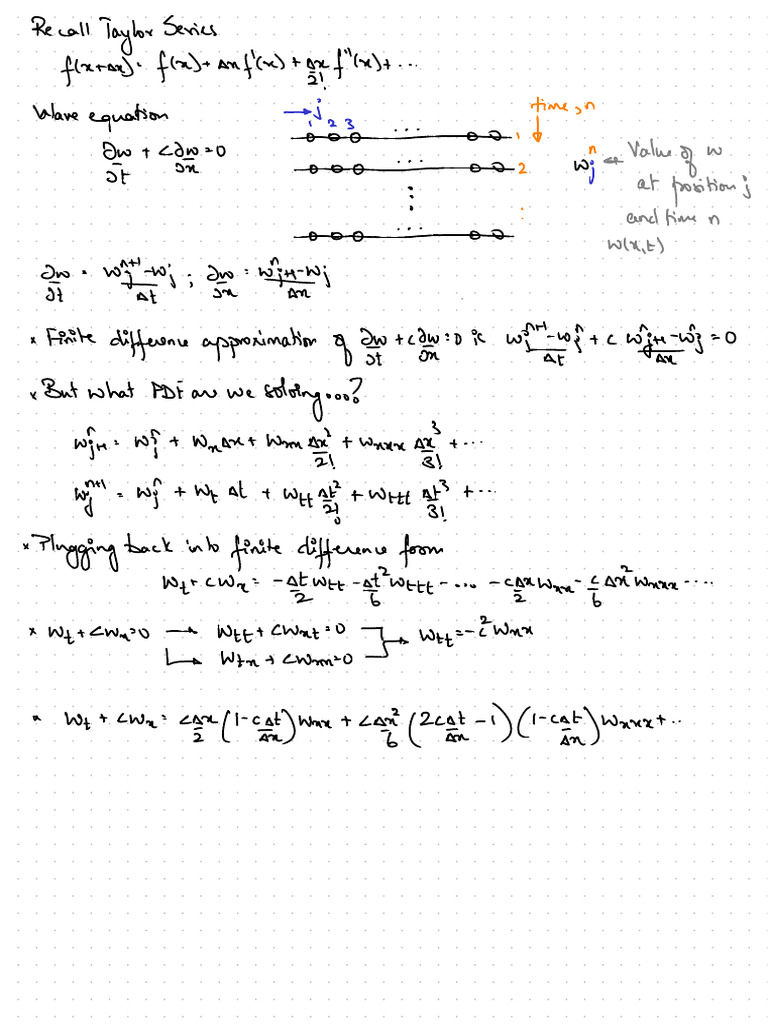 Recall Taylor Series
f(x+Δx) = f(x) + Δx f'(x) + Δx/2! f''(x) + ...
Wave equation
∂w/∂t + c ∂w/∂x = 0
→ j
1 2 3 ...
time, n
1
... 2
⋮ ⋮
...
w_j^n ← Value of w
at position j
and time n
w(x,t)
∂w/∂t = (w_j^{n+1} - w_j)/Δt ; ∂w/∂x = (w_{j+1}^n - w_j)/Δx
× Finite difference approximation of ∂w/∂t + c ∂w/∂x = 0 is (w_j^{n+1} - w_j^n)/Δt + c (w_{j+1}^n - w_j^n)/Δx = 0
× But what PDE are we solving...?
w_{j+1}^n = w_j^n + w_x Δx + w_xx Δx²/2! + w_xxx Δx³/3! + ...
w_j^{n+1} = w_j^n + w_t Δt + w_tt Δt²/2! + w_ttt Δt³/3! + ...
× Plugging back into finite difference form
w_t + c w_x = -Δt/2 w_tt - Δt²/6 w_ttt - ... - cΔx/2 w_xx - c/6 Δx² w_xxx ....
× w_t + c w_x = 0 → w_tt + c w_xt = 0 → w_tt = -c² w_xx
↳ w_tx + c w_xx = 0
× w_t + c w_x = cΔx/2 (1 - cΔt/Δx) w_xx + cΔx²/6 (2cΔt/Δx - 1)(1 - cΔt/Δx) w_xxx + ..